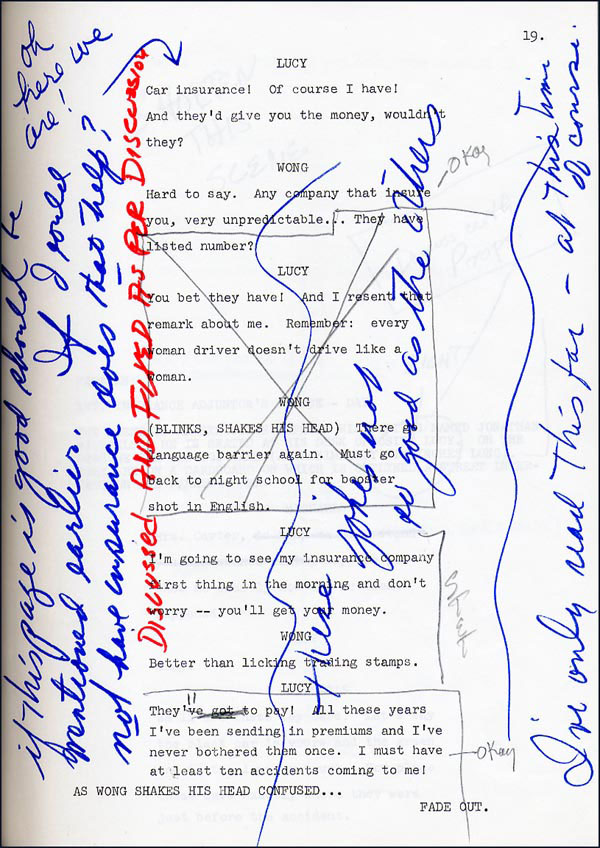 19.
LUCY
Car insurance!  Of course I have!
And they'd give you the money, wouldn't
they?
WONG
Hard to say.  Any company that insure
you, very unpredictable... They have
listed number?
LUCY
You bet they have!  And I resent that
remark about me.  Remember:  every
woman driver doesn't drive like a
woman.
WONG
(BLINKS, SHAKES HIS HEAD)  There go
language barrier again.  Must go
back to night school for booster
shot in English.
LUCY
I'm going to see my insurance company
first thing in the morning and don't
worry -- you'll get your money.
WONG
Better than licking trading stamps.
LUCY
They've got to pay!  All these years
I've been sending in premiums and I've
never bothered them once.  I must have
at least ten accidents coming to me!
AS WONG SHAKES HIS HEAD CONFUSED...
FADE OUT.
'll
OKay
OKay
oh
here we
are!
if this page is good should be
mentioned earlier. If I could
not have insurance does that help?
DISCUSSED AND FIXED AS PER DISCUSSION
these jokes not
as good as the others
I've only read this far – at this time
of course.
just before the accident.